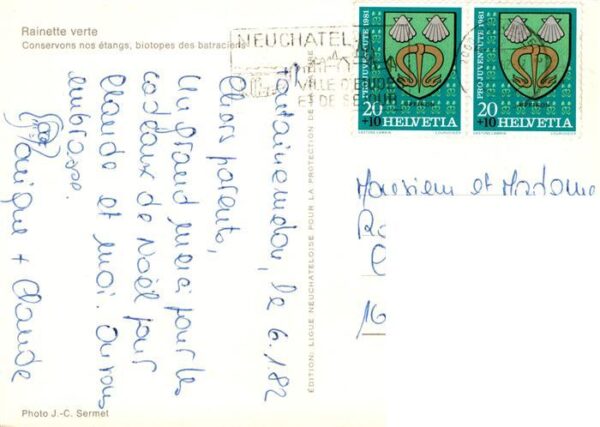 Rainette verte
Conservons nos étangs, biotopes des batraciens
NEUCHATEL
VILLE D'ETUDES
ET DE SEJOUR
PRO JUVENTUTE 1981
20
+10
HELVETIA
PRO JUVENTUTE 1981
20
+10
HELVETIA
Fontainemelon, le 6.1.82
Chers parents,
Un grand merci pour les
cadeaux de Noël pour
Claude et moi. On vous
embrasse.
+ Claude
EDITION: LIGUE NEUCHATELOISE POUR LA PROTECTION DE
Monsieur et Madame
16
Photo J.-C. Sermet